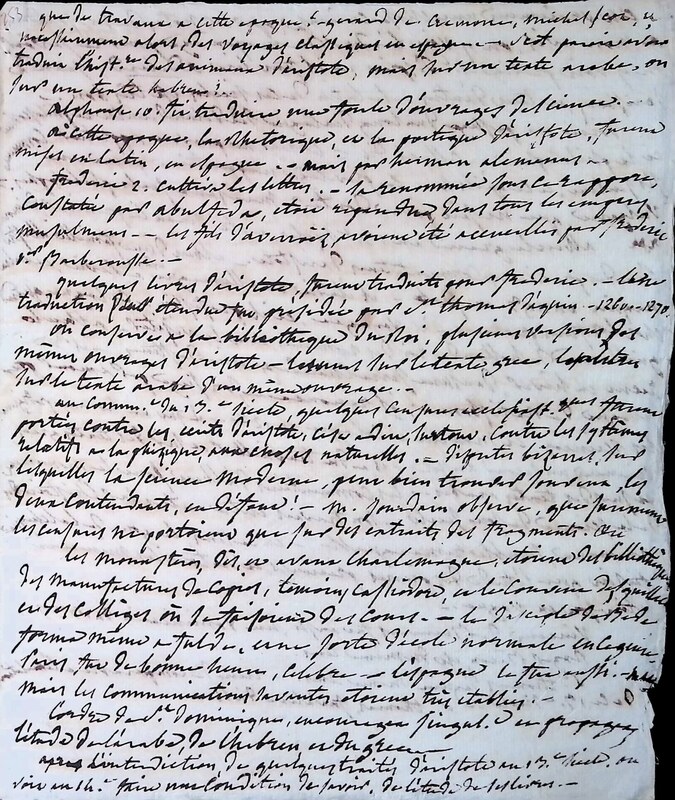 que de travaux a cette epoque! - gerard de Cremone, michel Scot, et
necessairement alors, des voyages classiques en espagne - c'est paris avoir
traduire l'hist.re des animaux d'aristote, mais sur un texte arabe, ou
sur un texte hebreu?
alphonse 10. fit traduire, une foule d'ouvrages de science. -
a cette epoque, la Rhetorique, et la poetique d'aristote, furent
mises en latin, en espagne. - mais par herman alemanus -
frederic 2. cultiva les lettres. - sa renommée sous ce rapport,
constatée par abulfeda, etoit répandue dans tous les empires
musulmans - les fils d'averroës, avoient été accueillis par frederic
Barberousse. -
quelques livres d'aristote furent traduits pour frederic. - une
traduction plus etendue fut présidée par St. thomas d'aquin - 1260 - 1270.
on conserve a la bibliotheque du Roi, plusieurs versions des
mêmes ouvrages d'aristote - les unes sur le texte grec, les autres
sur le texte arabe d'un même ouvrage. -
au comm.t du 13.e siecle, quelques censures ecclesiast.ques furent
portées contre les ecrits d'aristote, c'est a dire, surtout, contre les systêmes
relatifs a la phisique, aux choses naturelles. - disputes bizarres, sur
lesquelles la science moderne, peut bien trouver souvent, les
deux contendants, en defaut! - m. jourdain observe, que surement
les censures ne portoient que sur des extraits des fragments.
les monastères, dès, et avant Charlemagne, etoient des bibliothèques
des manufactures de copies, temoins Cassiodore, et le Couvent
et des colleges où se faisoient des cours. - le disciple de Bede
forma même a fulde, une sorte d'école normale
Paris fut de bonne heure, celebre - l'espagne le fut aussi. -
mais les communications savantes etoient très etablies. -
l'ordre de St. dominique, encouragea singul.t et propagea
l'étude de l'arabe, de l'hebreu, et du grec -
après l'interdiction de quelques traités d'aristote au 13.e siecle. on
voit au 14.e faire une condition de savoir, de l'étude de ses livres -